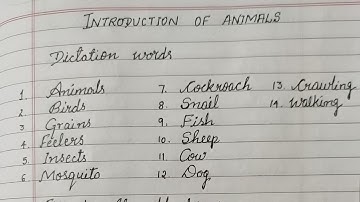 INTRODUCTION OF ANIMALS
Dictation words
1. Animals 7. Cockroach 13. Crawling
2. Birds 8. Snail 14. Walking
3. Grains 9. Fish
4. Feelers 10. Sheep
5. Insects 11. Cow
6. Mosquito 12. Dog